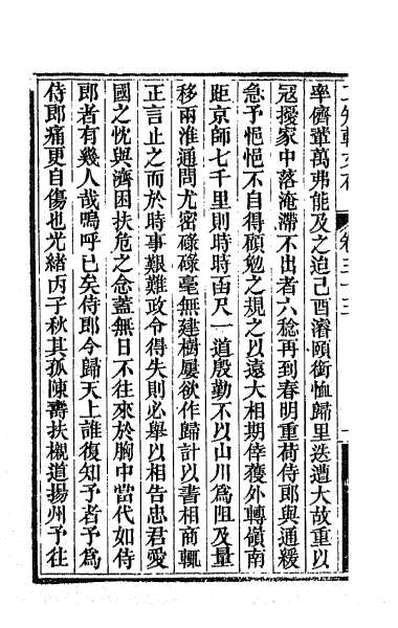 率儕輩萬弗能及之迨己酉濬頤銜恤歸里迭遭大故重以
寇擾家中落淹滯不出者六稔再到春明重荷侍郎與通緩
急予悒悒不自得頎勉之規之以遠大相期倖獲外轉嶺南
距京師七千里則時時函尺一道殷勤不以山川爲阻及量
移兩淮通問尤密碌碌毫無建樹屢欲作歸計以書相商輒
正言止之而於時事艱難政令得失則必舉以相告忠君愛
國之忱與濟困扶危之念蓋無日不往來於胸中當代如侍
郎者有幾人哉嗚呼已矣侍郎今歸天上誰復知予者予爲
侍郎痛更自傷也光緒丙子秋其孤陳壽扶櫬道揚州予往